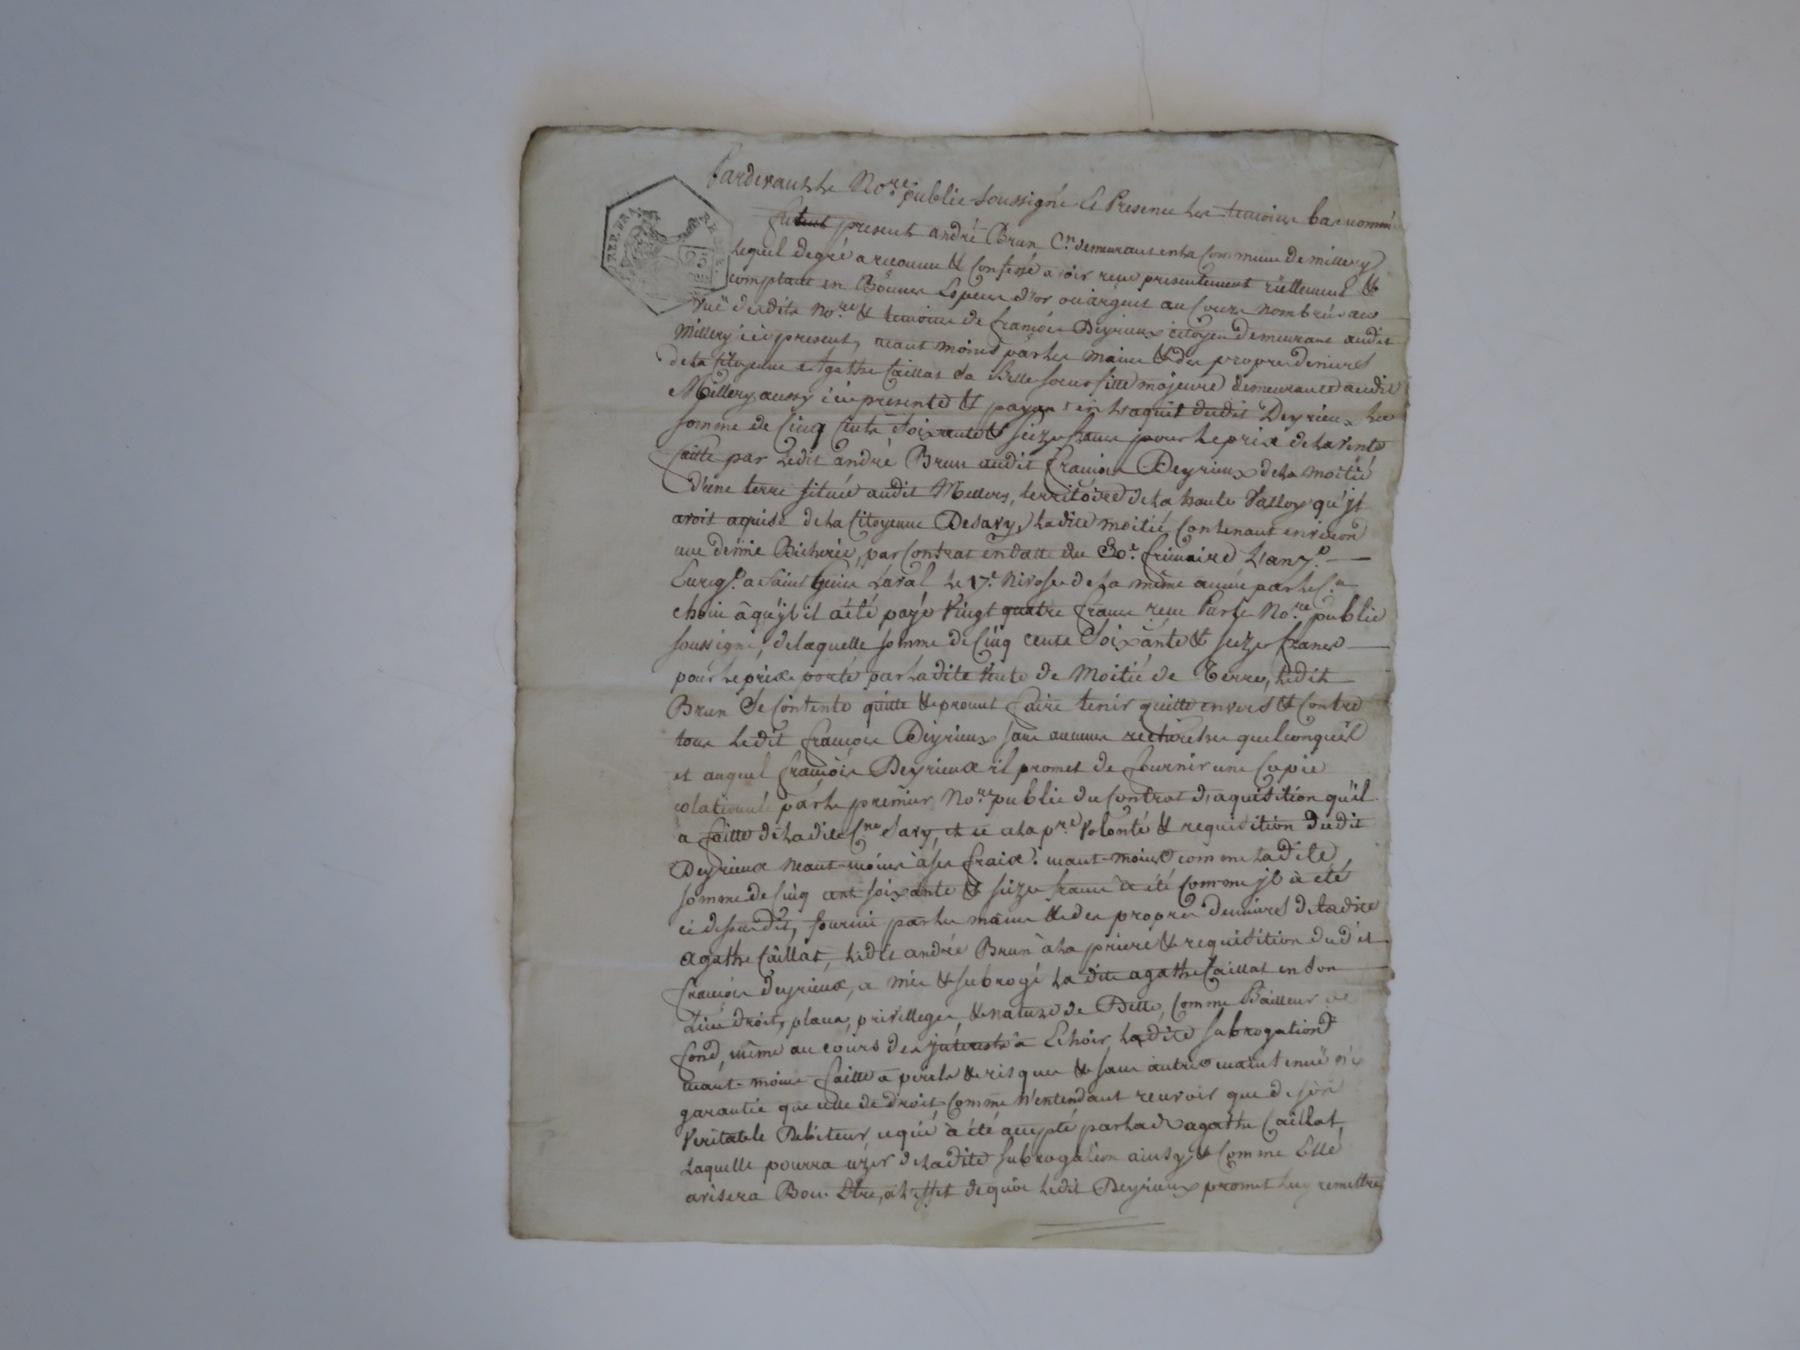 Pardevant le No.re public soussigné Et Presence des temoins bas nommés
fut present andré Brun C.n demeurant en la Commune de millery
Lequel de gré a reconnu & confessé avoir reçu presentement rëellement &
comptant en Bonnes Especes d'or ou argent au Cours nombrées au
vuë desdits No.re & temoins de françois Deyrieux citoyen demeurant audit
Millery ici present, neant moins par les mains & des propres deniers
de la Citoyenne Agathe Caillat sa Belle soeur fille majeure demeurante audit
Millery aussy ici presente & payant en l'aquit dudit Deyrieux La
somme de Cinq Cents Soixante & seize francs pour le prix de la vente
faitte par Ledit andré Brun audit françois Deyrieux de la moitié
d'une terre située audit Millery, territoire de la haute Valloy qu'jl
avoit aquise de la Citoyenne Desavy, Ladite moitié Contenant environ
une demie Bicherée, par Contrat en datte du 30.e frimaire L'an 7.e
Enreg.é a Saint Genis Laval le 17.e Nivose de la même année par le C.n
choin à qu'jl il a été payé Vingt quatre francs reçu Par le No.re public
soussigné, de laquelle somme de Cinq cents Soixante & seize francs
pour le prix porté par Ladite Vente de Moitié de Terre, Ledit
Brun Se Contente quitte & promet faire tenir quitte envers & Contre
tous Ledit françois Deyrieux sans aucunes recherches quelconques
et auquel françois Deyrieux il promet de fournir une Copie
colationnée par le premier No.re public du Contrat d'aquisition qu'il
a faitte de Ladite C.ne Savy, et ce a la p.re Volonté & requisition dudit
Deyrieux Neant-moins à ses fraix. neant-moins comme Ladite
somme de Cinq cent soixante & seize francs a été Comme jl à été
ci dessus dit, fournie par les mains & des propres deniers de Ladite
Agathe Caillat, Ledit andré Brun à la priere & requisition dudit
françois Deyrieux, a mis & subrogé La dite agathe Caillat en son
Lieu droit, place, privilleges & nature de Dette, Comme Bailleur de
fond, même au cours des jnterests à Echoir, Ladite subrogation
neant-moins faitte a perils & risques & sans autre maintenuë ni
garantie que celle de droit Comme N'entendant reçevoir que de son
Veritable Debiteur, ce qui à été accepté par Lad.e agathe Caillat,
Laquelle pourra uzer de Ladite subrogation ainsy & Comme Elle
avisera Bon Etre, a l'effet de quoi Ledit Deyrieux promet Luy remettre